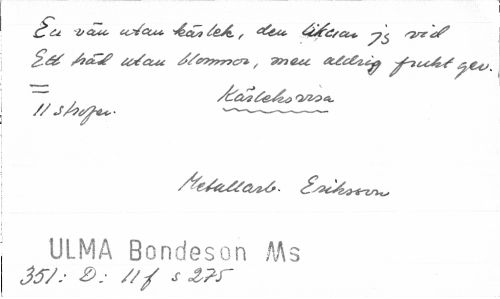 En vän utan kärlek, den liknar jg vid
Ett träd utan blommor, men aldrig frukt ger.
=
11 strofer. Kärleksvisa
Metallarb. Eriksson
ULMA Bondeson Ms
351: D: 11 f s 275